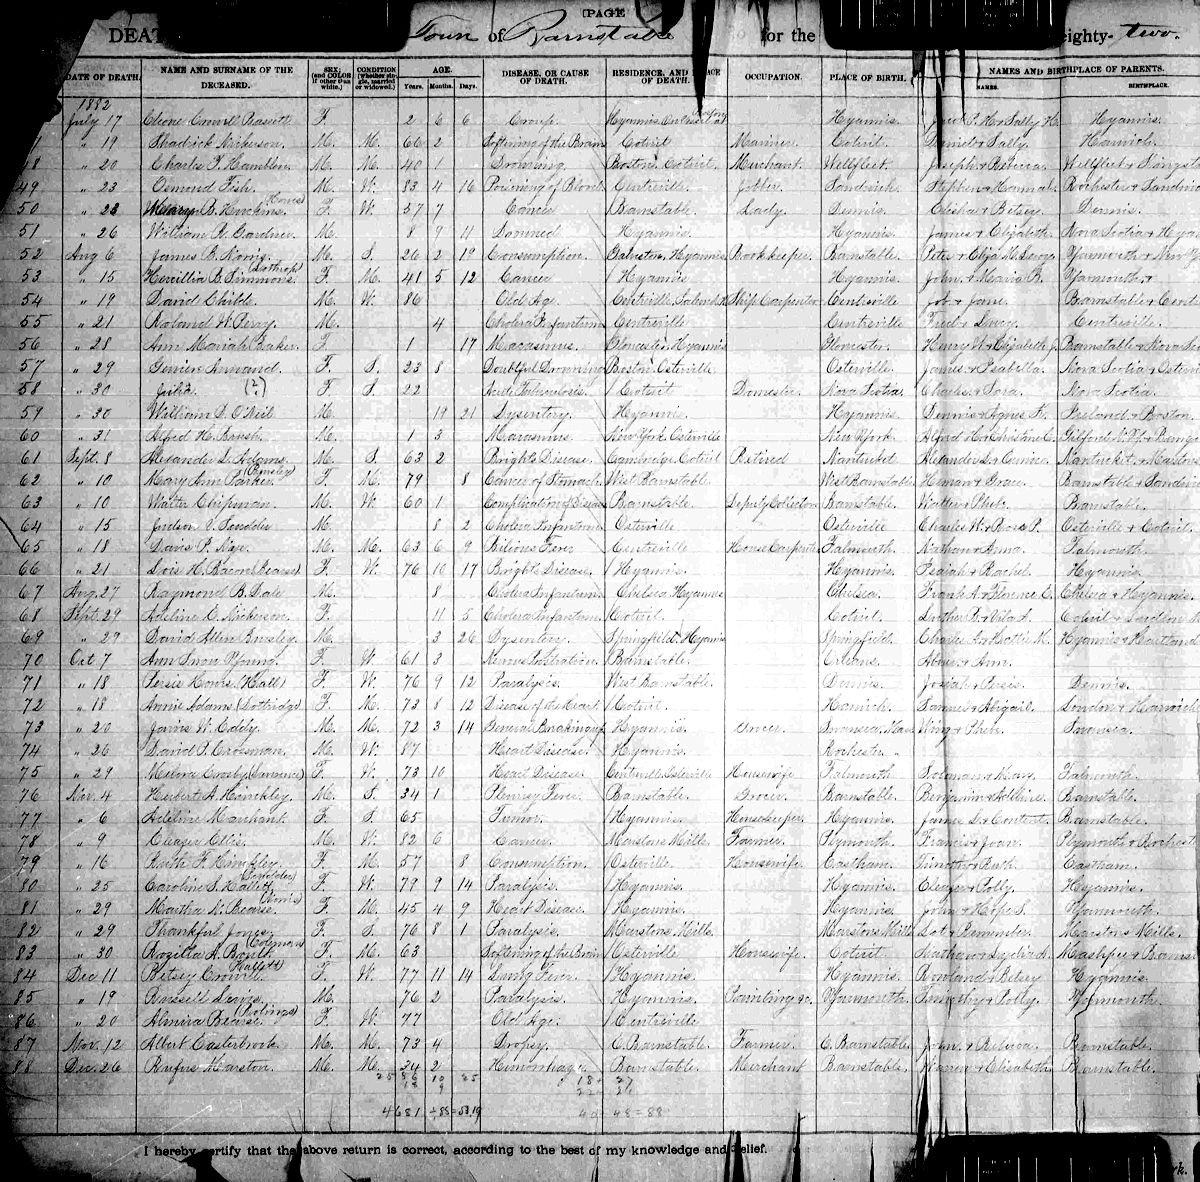 PAGE
DEAT Town of Barnstable for the eighty-two.
DATE OF DEATH. NAME AND SURNAME OF THE DECEASED. SEX; (and COLOR if other than white.) CONDITION (whether single, married or widowed.) AGE. Years. Months. Days. DISEASE, OR CAUSE OF DEATH. RESIDENCE, AND PLACE OF DEATH. OCCUPATION. PLACE OF BIRTH. NAMES AND BIRTHPLACE OF PARENTS. NAMES. BIRTHPLACE.
1882
July 17 F. 2 6 6 Croup. Hyannis, Hyannis. Hyannis.
" 19 Shadrick Nickerson. M. M. 66 2 Softening of the Brain Cotuit Mariner Cotuit. Daniel & Sally. Harwich.
48 " 20 Charles F. Hamblin. M. M. 40 1 Drowning. Boston, Cotuit. Merchant. Wellfleet. Joseph & Rebecca. Wellfleet &
49 " 23 Osmond Fish. M. W. 83 4 16 Poisoning of Blood Centreville. Jobber. Sandwich. Stephen & Hannah. Rochester & Sandwi
50 " 23 B. Hinckley. F. W. 57 7 Cancer Barnstable. Lady. Dennis. Elisha & Betsey. Dennis.
51 " 26 William H. Gardner. M. 8 9 11 Drowned Hyannis. Hyannis. James & Elizabeth. Nova Scotia & Hya
52 Aug 6 James B. Norris. M. S. 26 2 19 Consumption. Galveston, Hyannis Bookkeeper. Barnstable. Yarmouth & New Y
53 " 15 (Lothrop) Simmons. F. M. 41 5 12 Cancer Hyannis. Hyannis. John & Maria B. Yarmouth &
54 " 19 David Childs. M. W. 86 Old Age. Centreville, Ship Carpenter Centreville Job & Jane. Barnstable &
55 " 21 Roland W. Perry. M. 4 Cholera Infantum Centreville Centreville Fred & Centreville.
56 " 28 Ann Mariah Baker. F 1 17 Marasmus. Gloucester, Hyannis Gloucester. Henry & Elizabeth J. Barnstable & Nova Sco
57 " 29 F. S. 23 8 Doubtful Drowning Boston, Osterville Osterville. James & Isabella. Nova Scotia & Oster
58 " 30 Julia (?) F S. 22 Acute Tuberculosis. Cotuit Domestic. Nova Scotia. Charles & Nova Scotia.
59 " 30 William S. O'Neil M. 19 21 Dysentery. Hyannis. Hyannis. Dennis & Agnes Ireland & Boston.
60 " 31 Alfred H. M. 1 3 Marasmus. New York, Osterville New York. Alfred H. & Christine C.
61 Sept. 8 Alexander L. Adams M. S. 63 2 Brights Disease. Cambridge, Cotuit Retired Nantucket. Alexander L. & Eunice. Nantucket & Marston
62 " 10 Mary Ann Parker. F. M. 79 8 Cancer of Stomach. West Barnstable. West Barnstable. Heman & Grace. Barnstable & Sandwi
63 " 10 Walter Chipman. M. W. 60 1 Complication of Diseases Barnstable. Deputy Collector Barnstable. Walter & Phebe. Barnstable.
64 " 15 Judson Scudder M. 8 2 Cholera Infantum Osterville Osterville Charles W. & Rosa P. Osterville & Cotuit
65 " 18 Davis P. Nye. M. M. 63 6 9 Bilious Fever Centreville House Carpenter. Falmouth. Nathan & Anna. Falmouth.
66 " 21 Lois H. Bacon (Bearse) F. W. 76 10 17 Brights Disease. Hyannis. Hyannis. Isaiah & Rachel. Hyannis.
67 Aug. 27 Raymond B. M. 8 Cholera Infantum. Chelsea, Hyannis Chelsea. Frank A. & Florence E. Chelsea & Hyannis.
68 Sept. 29 Adeline C. Nickerson. F. 11 5 Cholera Infantum Cotuit. Cotuit. Cotuit &
69 " 29 David Allen M. 3 26 Dysentery. Springfield, Hyannis Springfield. Charles A. & Hattie M. Hyannis &
70 Oct 7 Ann Snow F. W. 61 3 Nervous Prostration. Barnstable. Orleans. Abner & Ann.
71 " 18 Persis Howes. (Hall) F. W. 76 9 12 Paralysis. West Barnstable. Dennis. Josiah & Persis. Dennis.
72 " 18 Annie Adams (Dottridge) F. M. 73 8 12 Disease of the Heart Cotuit. Harwich. Samuel & Abigail. London & Harwich
73 " 20 James W. Eddy. M. M. 72 3 14 General Hyannis. Grocer. Swansea, Mass Wing & Phebe. Swansea.
74 " 26 David P. Crossman. M. W. 87 Heart Disease. Hyannis. Rochester "
75 " 29 Crosby (Lawrence) F. W. 73 10 Heart Disease. Centreville, Osterville Housewife. Falmouth. Solomon & Mary. Falmouth.
76 Nov. 4 Herbert A. Hinckley. M. S. 34 1 Pleurisy Fever. Barnstable. Grocer. Barnstable. Benjamin & Adeline. Barnstable.
77 " 6 Adeline Marchant. F. S. 65 Tumor. Hyannis. Housekeeper. Hyannis. James D. & Content. Barnstable.
78 " 9 Eleazer Ellis. M. W. 82 6 Cancer. Marstons Mills. Farmer. Plymouth. Francis & Joan. Plymouth & Rochest
79 " 16 Ruth F. Hinckley. F. M. 57 8 Consumption. Osterville. Housewife. Eastham. Timothy & Ruth. Eastham.
80 " 25 (Scudder) Caroline S. Hallett F. W. 79 9 14 Paralysis. Hyannis. Hyannis. Eleazer & Polly. Hyannis.
81 " 29 Martha N. Bearse. F. M. 45 4 9 Heart Disease. Hyannis. Hyannis. John & Hope S. Yarmouth.
82 " 29 Thankful Jones. F. S. 76 8 1 Paralysis. Marstons Mills. Marstons Mills Lot & Remember. Marstons Mills.
83 " 30 (Coleman) Rozilla A. F. M. 63 Softening of the Brain Osterville Housewife. Cotuit. Nathan & Mashpee & Barnst
84 Dec 11 (Hallett) Betsey Crowell. F. W. 77 11 14 Lung Fever. Hyannis. Hyannis. Rowland & Betsey Hyannis.
85 " 19 Russell Lewis. M. 76 2 Paralysis. Hyannis. Painting &c. Yarmouth. Timothy & Polly. Yarmouth.
86 " 20 Almira Bearse. F. W. 77 Old Age. Centreville
87 Nov. 12 Albert Easterbrook. M. M. 73 4 Dropsy. C. Barnstable. Farmer. C. Barnstable. John & Rebecca. Barnstable.
88 Dec. 26 Rufus Marston. M. M. 34 2 Hemorrhage. Barnstable. Merchant Barnstable. Warren & Elizabeth Barnstable.
I hereby certify that the above return is correct, according to the best of my knowledge and belief.